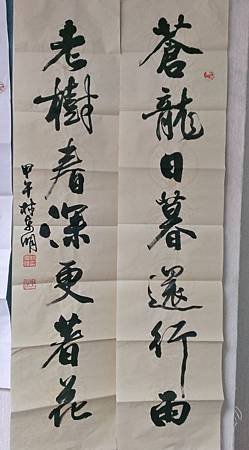 蒼龍日暮還行雨
老樹春深更著花
甲午林秀明